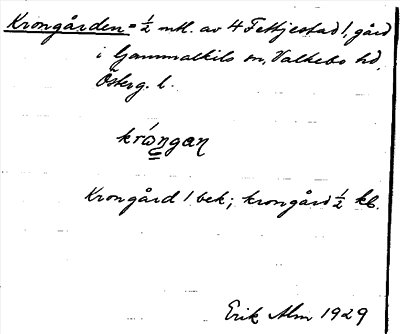 Krongården = ½ mtl. av 4 Fettjestad 1, gård
i Gammalkils sn, Valkebo hd,
Österg. l.
krώngan
Krongård 1 bek; krongård ½ kb.
Erik Alm 1929